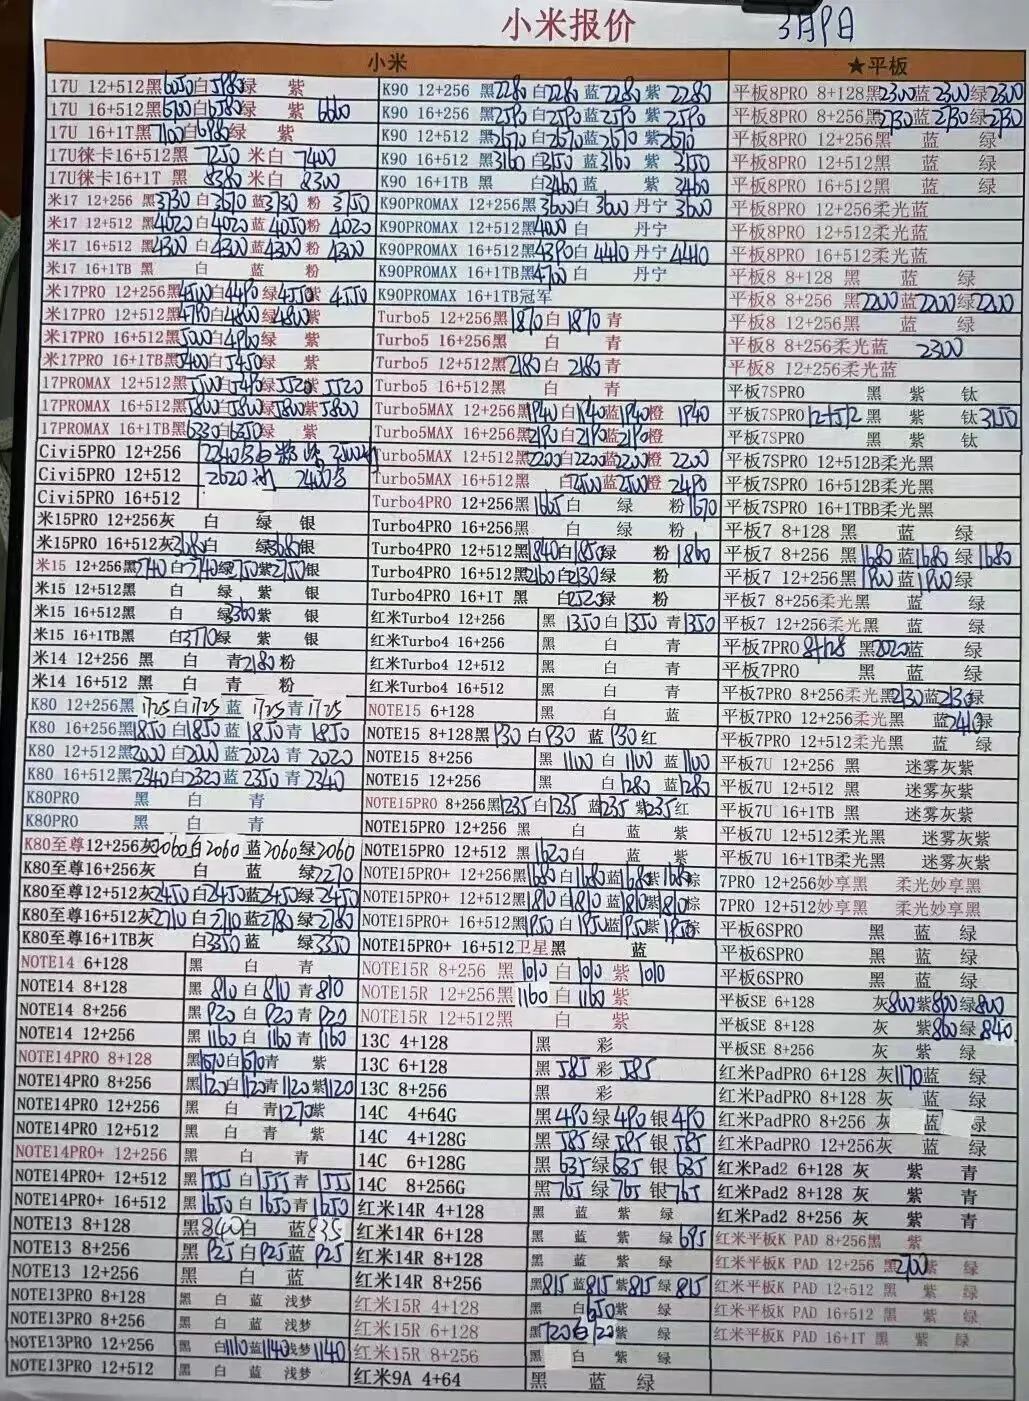 小米报价
3月9日
小米
17U 12+512黑6050白5980绿 紫
17U 16+512黑6700白6580绿 紫6660
17U 16+1T黑7100白6980绿 紫
17U徕卡16+512黑 7250 米白 7400
17U徕卡16+1T 黑 8380 米白 8300
米17 12+256 黑3730 白3670 蓝3730 粉 3750
米17 12+512 黑4020 白4020 蓝4050粉 4020
米17 16+512 黑4300 白4300蓝4300粉 4300
米17 16+1TB 黑 白 蓝 粉
米17PRO 12+256黑4500白4490绿4550紫 4550
米17PRO 12+512黑4780白4800绿4800紫
米17PRO 16+512黑5000白4900绿 紫
米17PRO 16+1TB黑5400白5450绿 紫
17PROMAX 12+512黑5500白5490绿5520紫5520
17PROMAX 16+512黑5800白5800绿5800紫5800
17PROMAX 16+1TB黑6230白6350绿 紫
Civi5PRO 12+256
Civi5PRO 12+512
Civi5PRO 16+512
米15PRO 12+256灰 白 绿 银
米15PRO 16+512灰3680白 绿3680银
米15 12+256黑2740白2740绿2750紫2750银
米15 12+512黑 白 绿 紫 银
米15 16+512黑 白 绿3360紫 银
米15 16+1TB黑 白3770绿 紫 银
米14 12+256 黑 白 青2180粉
米14 16+512 黑 白 青 粉
K80 12+256黑1725白1725蓝 1725青1725
K80 16+256黑1850白1850蓝 1850青 1850
K80 12+512黑2000白2000蓝 2020青 2020
K80 16+512黑2340白2320蓝 2350青 2340
K80PRO 黑 白 青
K80PRO 黑 白 青
K80至尊12+256灰2060白2060 蓝2060绿2060
K80至尊16+256灰 白 蓝 绿2270
K80至尊12+512灰2450白2450蓝2450绿2450
K80至尊16+512灰2710白2710蓝2780绿2760
K80至尊16+1TB灰 白3350蓝 绿3350
NOTE14 6+128 黑 白 青
NOTE14 8+128 黑 810白 810青 810
NOTE14 8+256 黑 920白 920青 920
NOTE14 12+256 黑1160白 1160青 1160
NOTE14PRO 8+128 黑1070白1070青 紫
NOTE14PRO 8+256 黑1120白1120青1120紫1120
NOTE14PRO 12+256 黑 白 青1270紫
NOTE14PRO 12+512 黑 白 青 紫
NOTE14PRO+ 12+256 黑 白 青
NOTE14PRO+ 12+512 黑1555白1555青1555
NOTE14PRO+ 16+512 黑1650白1650青1650
NOTE13 8+128 黑840白 蓝835
NOTE13 8+256 黑 925白925蓝 925
NOTE13 12+256 黑 白 蓝
NOTE13PRO 8+128 黑 白 蓝 浅梦
NOTE13PRO 8+256 黑 白 蓝 浅梦
NOTE13PRO 12+256 黑 白1110蓝1140浅梦1140
NOTE13PRO 12+512 黑 白 蓝 浅梦
K90 12+256 黑2280白2280蓝2280紫 2280
K90 16+256 黑2590白2590蓝2590紫 2590
K90 12+512 黑2670白2670蓝2670紫2670
K90 16+512 黑3160白3150蓝3160紫 3150
K90 16+1TB 黑 白3460蓝 紫 3460
K90PROMAX 12+256黑3600白3600 丹宁 3600
K90PROMAX 12+512黑4000白 丹宁
K90PROMAX 16+512黑4390白4410丹宁 4410
K90PROMAX 16+1TB黑4700白 丹宁
K90PROMAX 16+1TB冠军
Turbo5 12+256黑1810白 1810青
Turbo5 16+256黑 白 青
Turbo5 12+512黑2180白 2180青
Turbo5 16+512黑 白 青
Turbo5MAX 12+256黑1940白1940蓝1940橙 1940
Turbo5MAX 16+256黑2190白2190蓝2190橙
Turbo5MAX 12+512黑2200白2200蓝2200橙 2200
Turbo5MAX 16+512黑 白2500蓝2500橙 2490
Turbo4PRO 12+256黑1665白 绿 粉1670
Turbo4PRO 16+256黑 白 绿 粉
Turbo4PRO 12+512黑1840白1850绿 粉 1860
Turbo4PRO 16+512黑2160白2130绿 粉
Turbo4PRO 16+1T 黑 白2520绿 粉
红米Turbo4 12+256 黑 1350白 1350青1350
红米Turbo4 16+256 黑 白 青
红米Turbo4 12+512 黑 白 青
红米Turbo4 16+512 黑 白 青
NOTE15 6+128 黑 白 蓝
NOTE15 8+128黑 930白930 蓝 930红
NOTE15 8+256 黑 1100白 1100蓝1100
NOTE15 12+256 黑 白 1280蓝1280
NOTE15PRO 8+256黑1235白1235蓝1235紫1235红
NOTE15PRO 12+256 黑 白 蓝 紫
NOTE15PRO 12+512 黑1620白 蓝 紫
NOTE15PRO+ 12+256黑1680白1680蓝1680紫1680棕
NOTE15PRO+ 12+512黑1810白1810蓝1810紫1810棕
NOTE15PRO+ 16+512黑1950白1950蓝1950紫1950棕
NOTE15PRO+ 16+512卫星黑 蓝
NOTE15R 8+256 黑 1010白 1010紫 1010
NOTE15R 12+256黑1160白 1160紫
NOTE15R 12+512黑 白 紫
13C 4+128 黑 彩
13C 6+128 黑 585彩 585
13C 8+256 黑 彩
14C 4+64G 黑490绿490银490
14C 4+128G 黑585绿585银585
14C 6+128G 黑635绿635银635
14C 8+256G 黑765绿765银765
红米14R 4+128 黑 蓝 紫 绿
红米14R 6+128 黑 蓝 紫 绿695
红米14R 8+128 黑 蓝 紫 绿
红米14R 8+256 黑815蓝815紫815绿815
红米15R 4+128 黑 白650紫 绿
红米15R 6+128 黑720白720紫 绿
红米15R 8+256 黑 白 紫 绿
红米9A 4+64 黑 蓝 绿
★平板
平板8PRO 8+128黑2300蓝2300绿2300
平板8PRO 8+256黑2730蓝2730绿2730
平板8PRO 12+256黑 蓝 绿
平板8PRO 12+512黑 蓝 绿
平板8PRO 16+512黑 蓝 绿
平板8PRO 12+256柔光蓝
平板8PRO 12+512柔光蓝
平板8PRO 16+512柔光蓝
平板8 8+128 黑 蓝 绿
平板8 8+256 黑2200蓝2200绿2200
平板8 12+256黑 蓝 绿
平板8 8+256柔光蓝 2300
平板8 12+256柔光蓝
平板7SPRO 黑 紫 钛
平板7SPRO 12+512 黑 紫 钛3150
平板7SPRO 黑 紫 钛
平板7SPRO 12+512B柔光黑
平板7SPRO 16+512B柔光黑
平板7SPRO 16+1TBB柔光黑
平板7 8+128 黑 蓝 绿
平板7 8+256 黑1680蓝1680绿1680
平板7 12+256黑1900蓝1900绿
平板7 8+256柔光黑 蓝 绿
平板7 12+256柔光黑 蓝 绿
平板7PRO 8+128 黑2020蓝 绿
平板7PRO 黑 蓝 绿
平板7PRO 8+256柔光黑2130蓝2130绿
平板7PRO 12+256柔光黑 蓝2410绿
平板7PRO 12+512柔光黑 蓝 绿
平板7U 12+256 黑 迷雾灰紫
平板7U 12+512 黑 迷雾灰紫
平板7U 16+1TB 黑 迷雾灰紫
平板7U 12+512柔光黑 迷雾灰紫
平板7U 16+1TB柔光黑 迷雾灰紫
7PRO 12+256妙享黑 柔光妙享黑
7PRO 12+512妙享黑 柔光妙享黑
平板6SPRO 黑 蓝 绿
平板6SPRO 黑 蓝 绿
平板6SPRO 黑 蓝 绿
平板SE 6+128 灰800紫800绿800
平板SE 8+128 灰 紫860绿840
平板SE 8+256 灰 紫 绿
红米PadPRO 6+128 灰1170蓝 绿
红米PadPRO 8+128 灰 蓝 绿
红米PadPRO 8+256 灰 蓝 绿
红米PadPRO 12+256灰 蓝 绿
红米Pad2 6+128 灰 紫 青
红米Pad2 8+128 灰 紫 青
红米Pad2 8+256 灰 紫 青
红米平板K PAD 8+256黑 紫
红米平板K PAD 12+256 黑2700紫 绿
红米平板K PAD 12+512 黑 紫 绿
红米平板K PAD 16+512 黑 紫 绿
红米平板K PAD 16+1T 黑 紫 绿